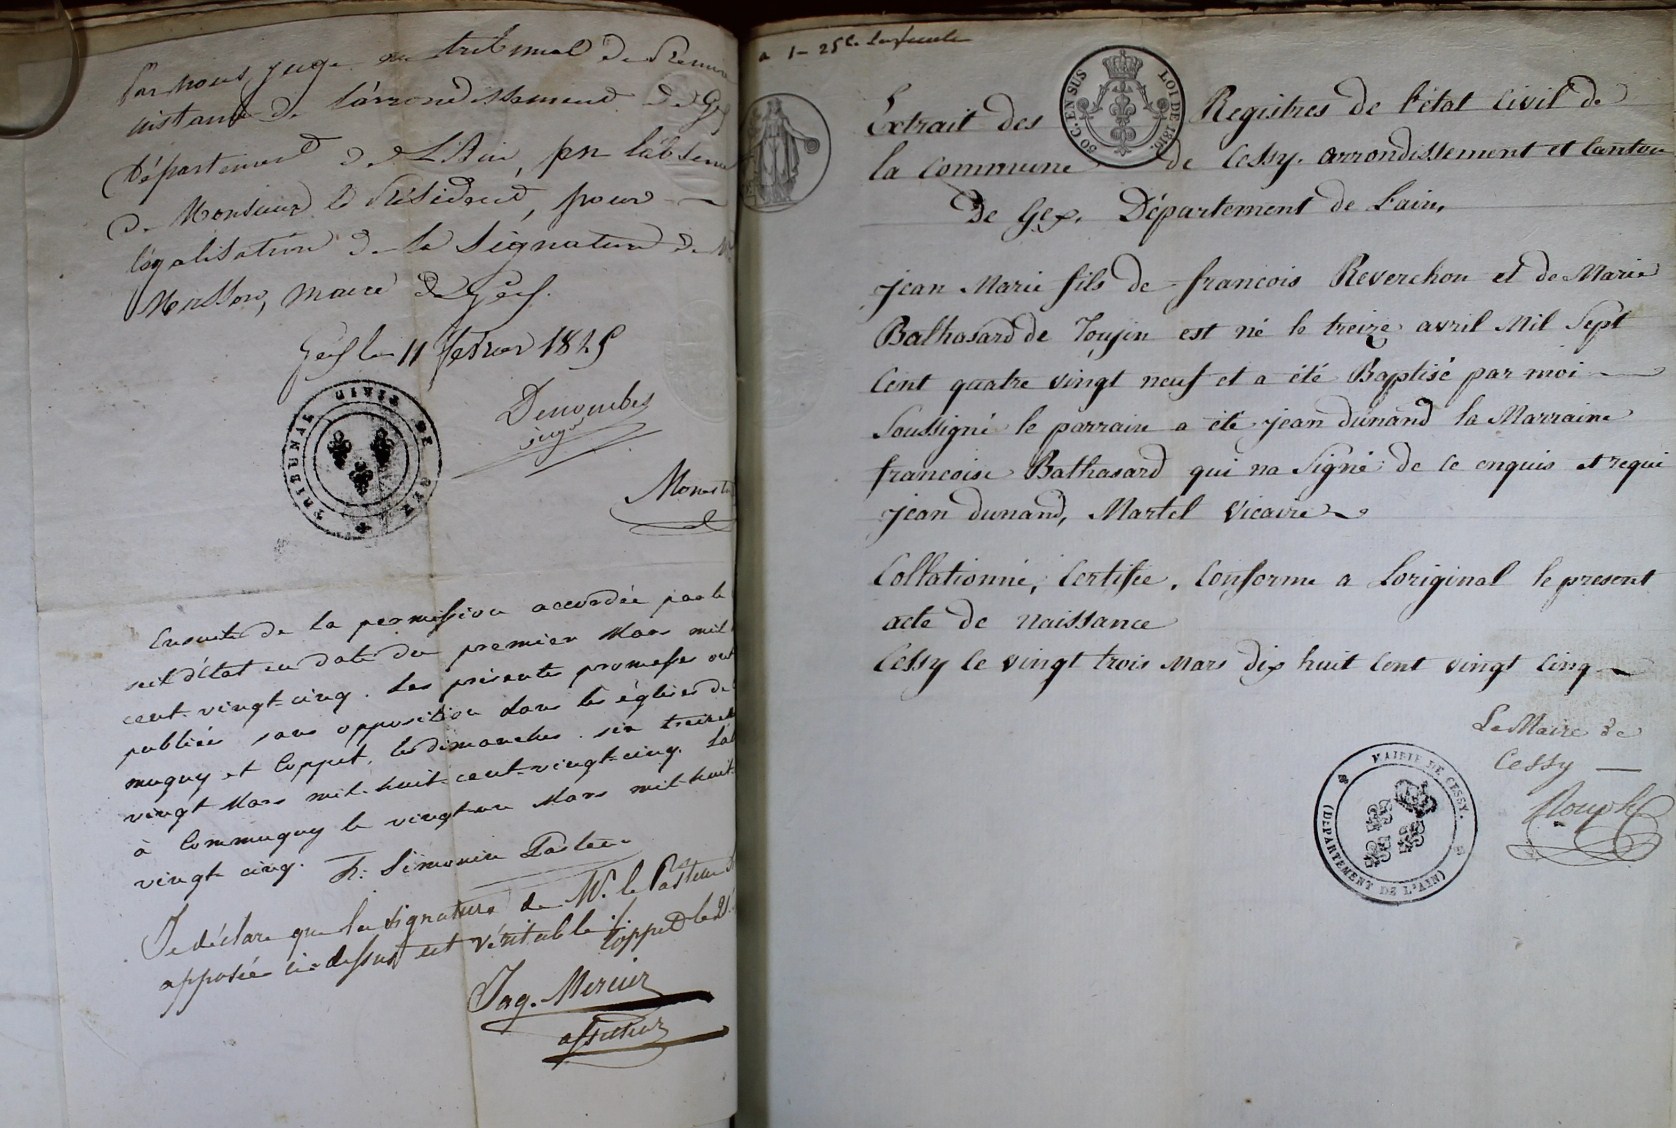 Par nous, juge au tribunal de Premi
instance de l'arrondissement de Gex
Département de L'Ain, pr l'absence
de Monsieur le Président, pour
légalisation de la signature de Mr
maire de Gex.
Gex le 11 fevrier 1825
juge
TRIBUNAL CIVIL DE GEX
Ensuite de la permission accordée par le
seil d'état en date du premier Mars mil
cent-vingt-cinq. Les présentes promesses ont
publiées sans opposition dans les églises de
mugny et Coppet, les dimanches six treize
vingt Mars mil-huit-cent-vingt-cinq.
à Commugny le vingt un Mars mil huit
vingt cinq. Simonin Pasteur
Je déclare que la signature de Mr. le Pasteur
apposée ci-dessus est véritable. Coppet le 21
Jaq. Mercier
assesseur
a 1 - 25 c. la feuille
50 C. EN SUS
LOI DE 1816
Extrait des Registres de l'état Civil de
la Commune de Cessy, arrondissement et Canton
De Gex, Département de L'ain,
Jean Marie fils de françois Reverchon et de Marie
Balthasard de Toujin est né le treize avril Mil Sept
Cent quatre vingt neuf et a été Baptisé par moi
Soussigné le parrain a été jean dunand la Marraine
francoise Balthasard qui na Signé de ce enquis et requi
jean dunand, Martel Vicaire
Collationné, Certifié, Conforme a Loriginal le present
acte de Naissance
Cessy le vingt trois Mars dix huit Cent vingt Cinq
Le Maire de
Cessy
MAIRIE DE CESSY.
(DEPARTEMENT DE L'AIN)